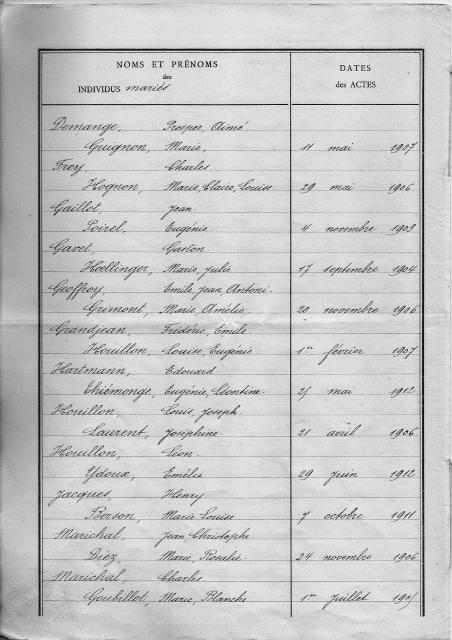 NOMS ET PRÉNOMS
des
INDIVIDUS mariés
DATES
des ACTES
Demange, Prosper, Aimé
Guignon, Marie, 11 mai 1907
Frey Charles
Hognon, Marie, Claire, Louise 29 mai 1906
Gaillot, Jean
Poirel, Eugénie 4 novembre 1903
Gavet, Gaston
Hoellinger, Marie, Julie 17 septembre 1904
Geoffroy, Emile, Jean, Antoni
Grimont, Marie, Amélie 20 novembre 1906
Grandjean, Frédéric, Emile
Houillon, Louise, Eugénie 1er février 1907
Hartmann, Edouard
Thiémonge, Eugénie, Léontine 25 mai 1912
Houillon, Louis, Joseph
Laurent, Joséphine 21 avril 1906
Houillon, Léon
Ydoux, Emélie 29 juin 1912
Jacques, Henry
Berson, Marie-Louise 7 octobre 1911
Marichal, Jean, Christophe
Diez, Marie, Rosalie 24 novembre 1906
Marichal, Charles
Goubillot, Marie, Blanche 1er juillet 1905